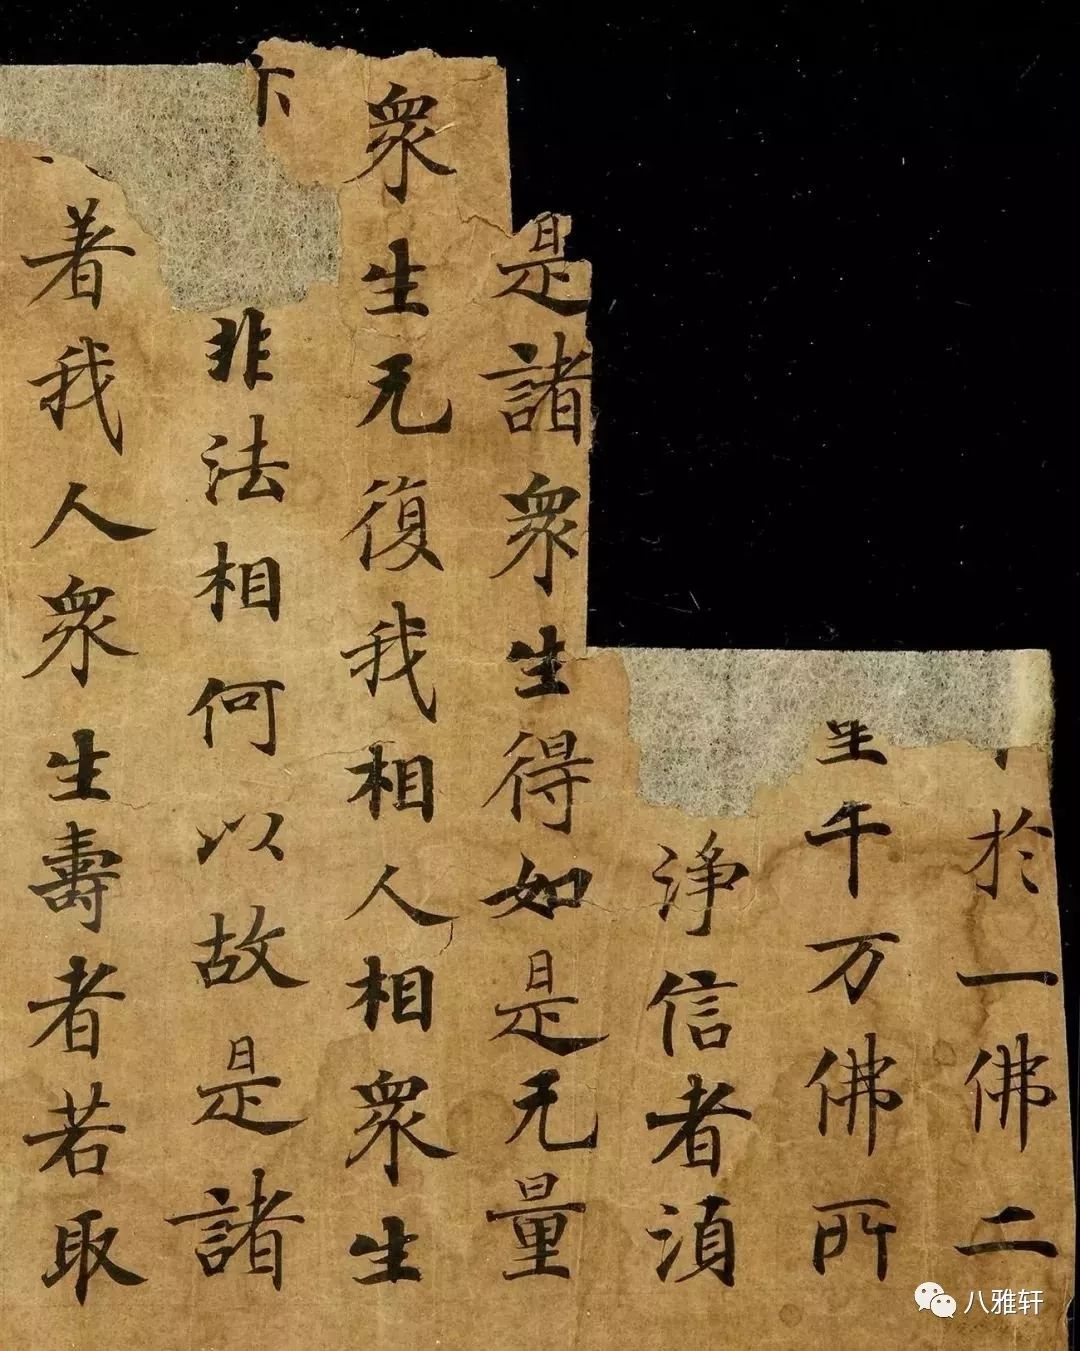 於一佛二
千万佛所
淨信者湏
是諸衆生得如是无量
衆生无復我相人相衆生
非法相何以故是諸
著我人衆生壽者若取
八雅轩